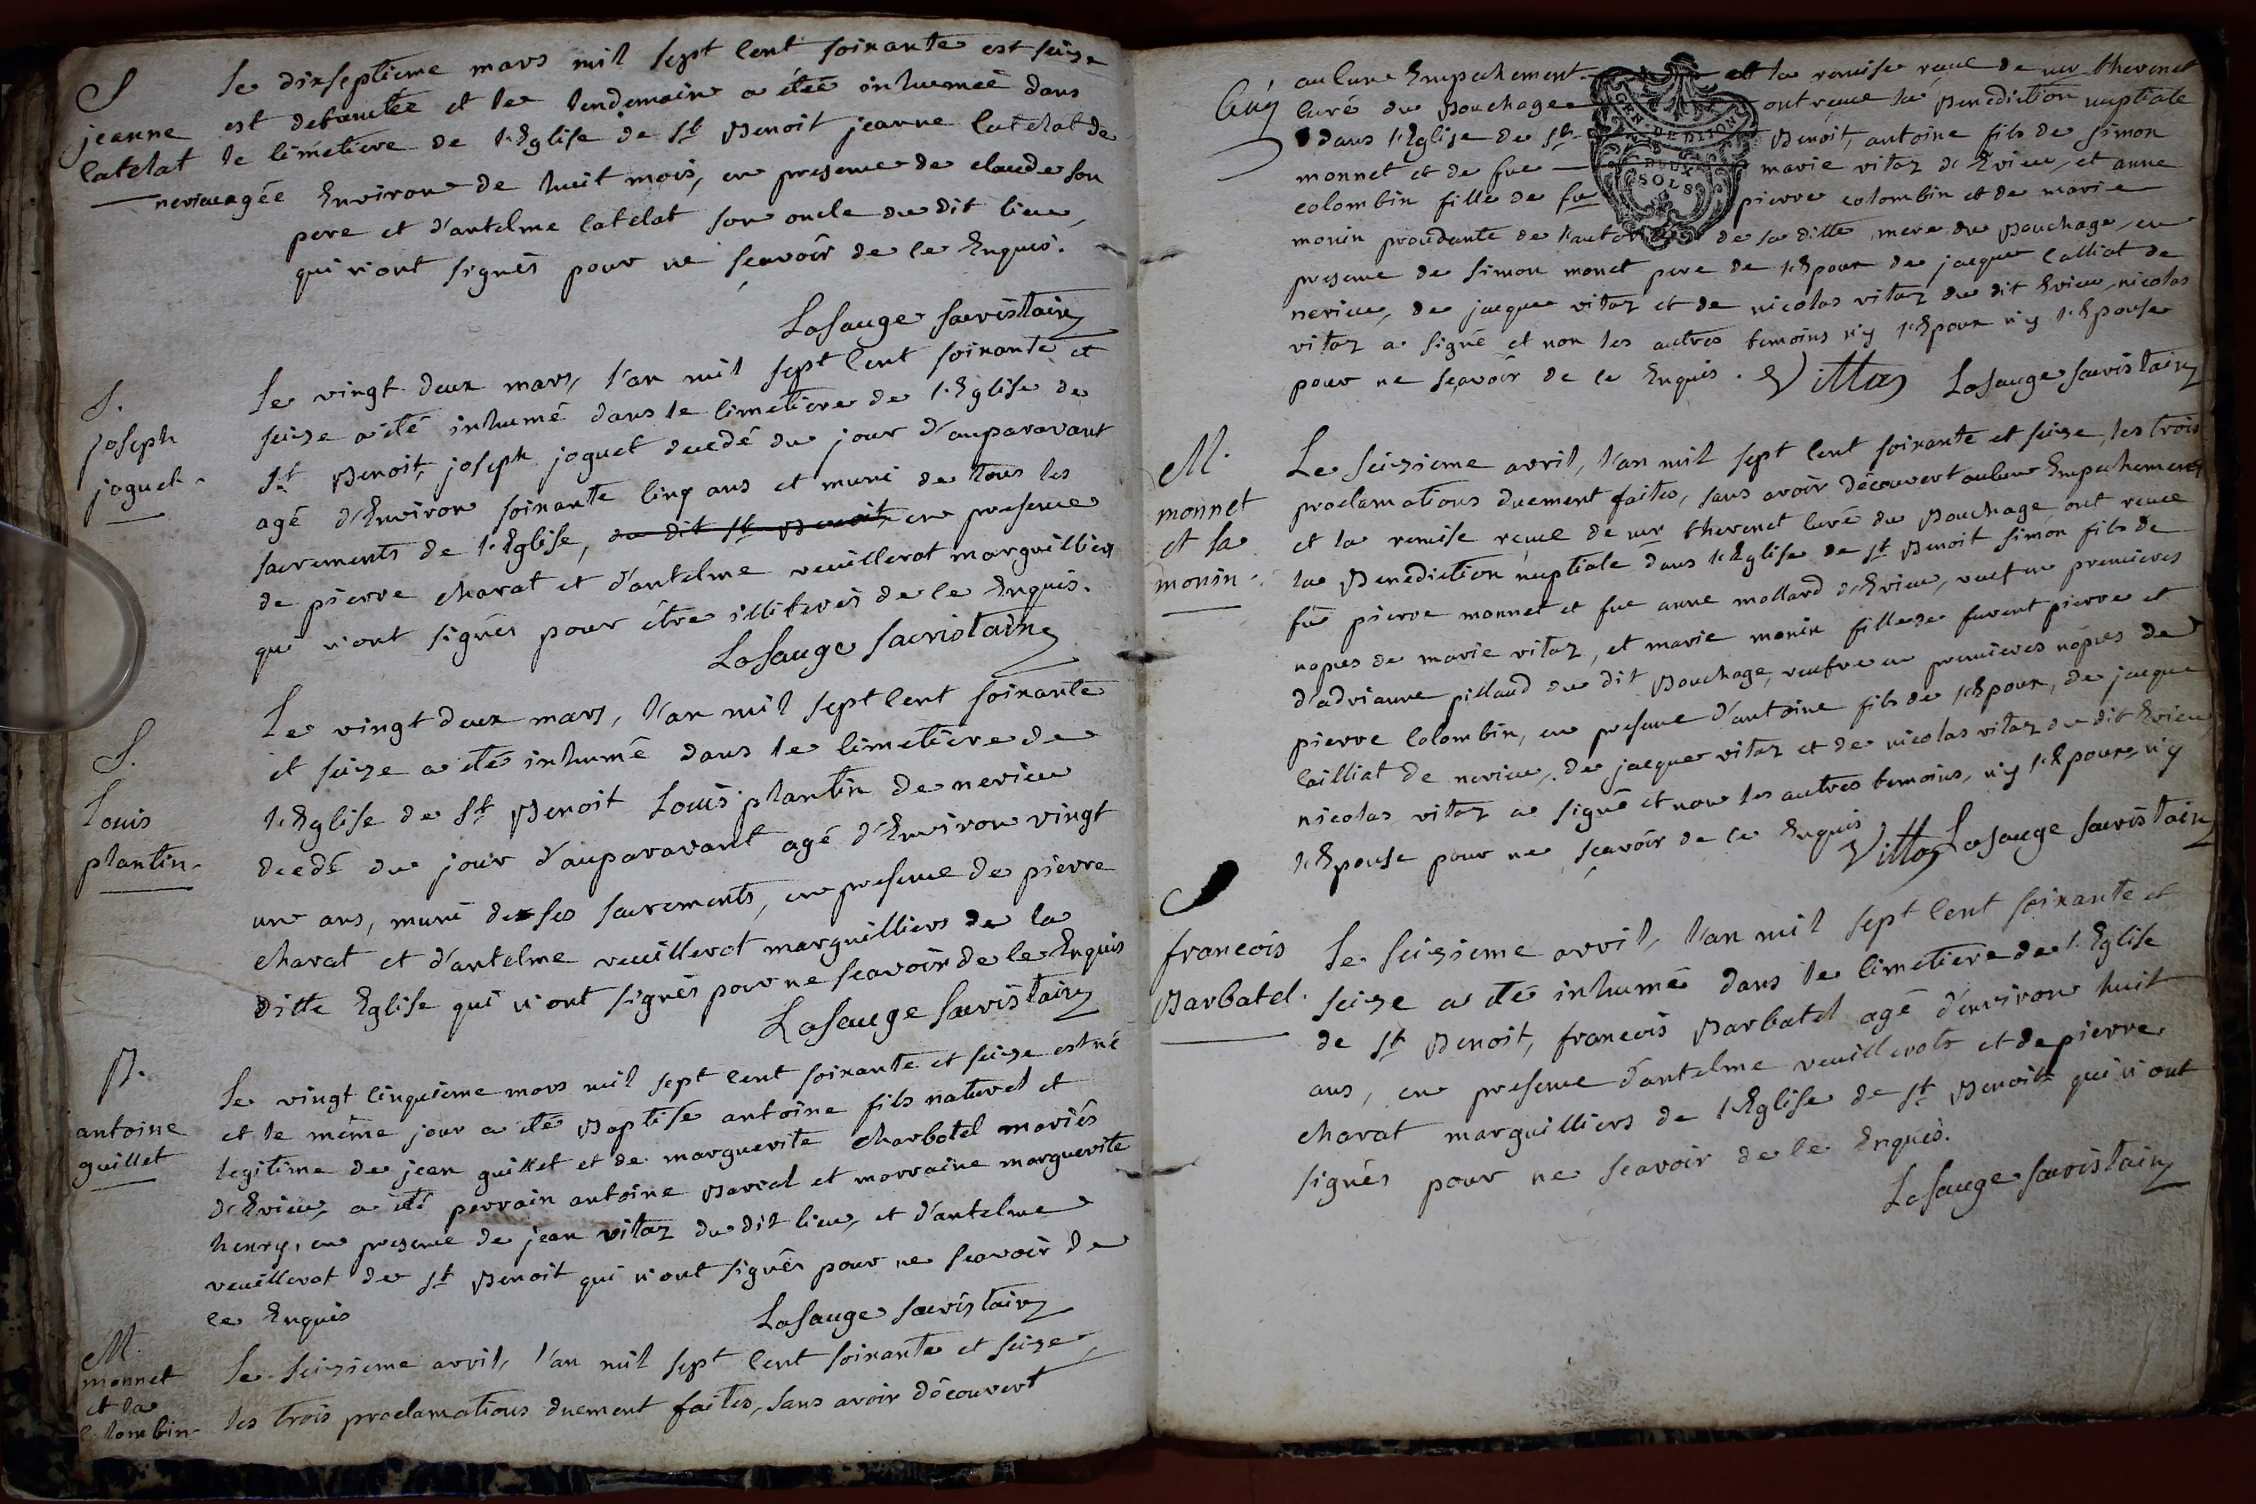 S
jeanne
catelat
Le dixseptieme mars mil sept cent soixante est seize
est defuntée et le lendemain a étée inhumeé dans
le cimétiere de l'Eglise de St Benoit jeanne catelat de
nerieu agée Environ de huit mois, en presence de claude son
pere et d'antelme catelat son oncle du dit lieu,
qui n'ont signés pour ne sçavoir de ce Enquis.
Lasauge sacristain
S.
joseph
joguet.
Le vingt deux mars, l'an mil sept cent soixante et
seize a été inhumé dans le cimetiere de l'Eglise de
St Benoit, joseph joguet decedé du jour d'auparavant
agé d'Environ soixante cinq ans et muni de tous les
sacrements de l'Eglise, du dit St Benoit en presence
de pierre charat et d'antelme veuillerot marguilliers
qui n'ont signés pour être illiterés de ce Enquis.
Lasauge sacristain
S.
Louis
plantin.
Le vingt deux mars, l'an mil sept cent soixante
et seize a été inhumé dans le cimetiere de
l'Eglise de St Benoit Louis plantin de nerieu
decedé du jour d'auparavant agé d'Environ vingt
un ans, muni de ses sacrements, en presence de pierre
charat et d'antelme veuillerot marguilliers de la
ditte Eglise qui n'ont signés pour ne scavoir de ce Enquis
Lasauge sacristain
B.
antoine
guillet
Le vingt cinquieme mars mil sept cent soixante et seize est né
et le même jour a été Baptisé antoine fils naturel et
legitime de jean guillet et de marguerite charbotel mariés
d'Evieu, a été parrain antoine Barial et marraine marguerite
henry, en presence de jean vitoz du dit lieu, et d'antelme
veuillerot de St Benoit qui n'ont signés pour ne scavoir de
ce Enquis
Lasauge sacristain
M.
monnet
et la
colombin.
Le seizieme avril, l'an mil sept cent soixante et seize,
les trois proclamations duement faites, sans avoir découvert
aucun Empechement et la remise reçue de mr thevenet
curé du Bouchage ont reçue la Benediction nuptiale
dans l'Eglise de St Benoit, antoine fils de simon
monnet et de fue marie vitoz d'Evieu, et anne
colombin fille de fu pierre colombin et de marie
monin procédante de l'autorité de sa ditte mere du Bouchage, en
presence de simon monet pere de l'Epoux de jacque calliat de
nerieu, de jacque vitoz et de nicolas vitoz du dit Evieu, nicolas
vitoz a signé et non les autres temoins n'y l'Epoux n'y l'Epouse
pour ne sçavoir de ce Enquis. Vittoz Lasauge sacristain
GEN. DE DIJON
DEUX
SOLS
M.
monnet
et la
monin.
Le seizieme avril, l'an mil sept cent soixante et seize, les trois
proclamations duement faites, sans avoir découvert aucun Empechement
et la remise reçue de mr thevenet curé du Bouchage ont recue
la Benediction nuptiale dans l'Eglise de St Benoit simon fils de
fû pierre monnet et fue anne mollard d'Evieu, veuf en premieres
nopces de marie vitoz, et marie monin fille de furent pierre et
d'adrianne pillaud du dit Bouchage, veufve en premieres nôpces de
pierre colombin, en presence d'antoine fils de l'Epoux, de jacque
cailliat de nerieu, de jacque vitoz et de nicolas vitoz du dit Evieu
nicolas vitoz a signé et non les autres temoins, n'y l'Epoux, n'y
l'Epouse pour ne sçavoir de ce Enquis
Vittoz Lasauge sacristain
S
francois
Barbatel.
Le seizieme avril, l'an mil sept cent soixante et
seize a été inhumé dans le cimetiere de l'Eglise
de St Benoit, francois Barbatel agé d'environ huit
ans, en presence d'antelme veuillerot et de pierre
charat marguilliers de l'Eglise de St Benoit qui n'ont
signés pour ne scavoir de ce Enquis.
Lasauge sacristain